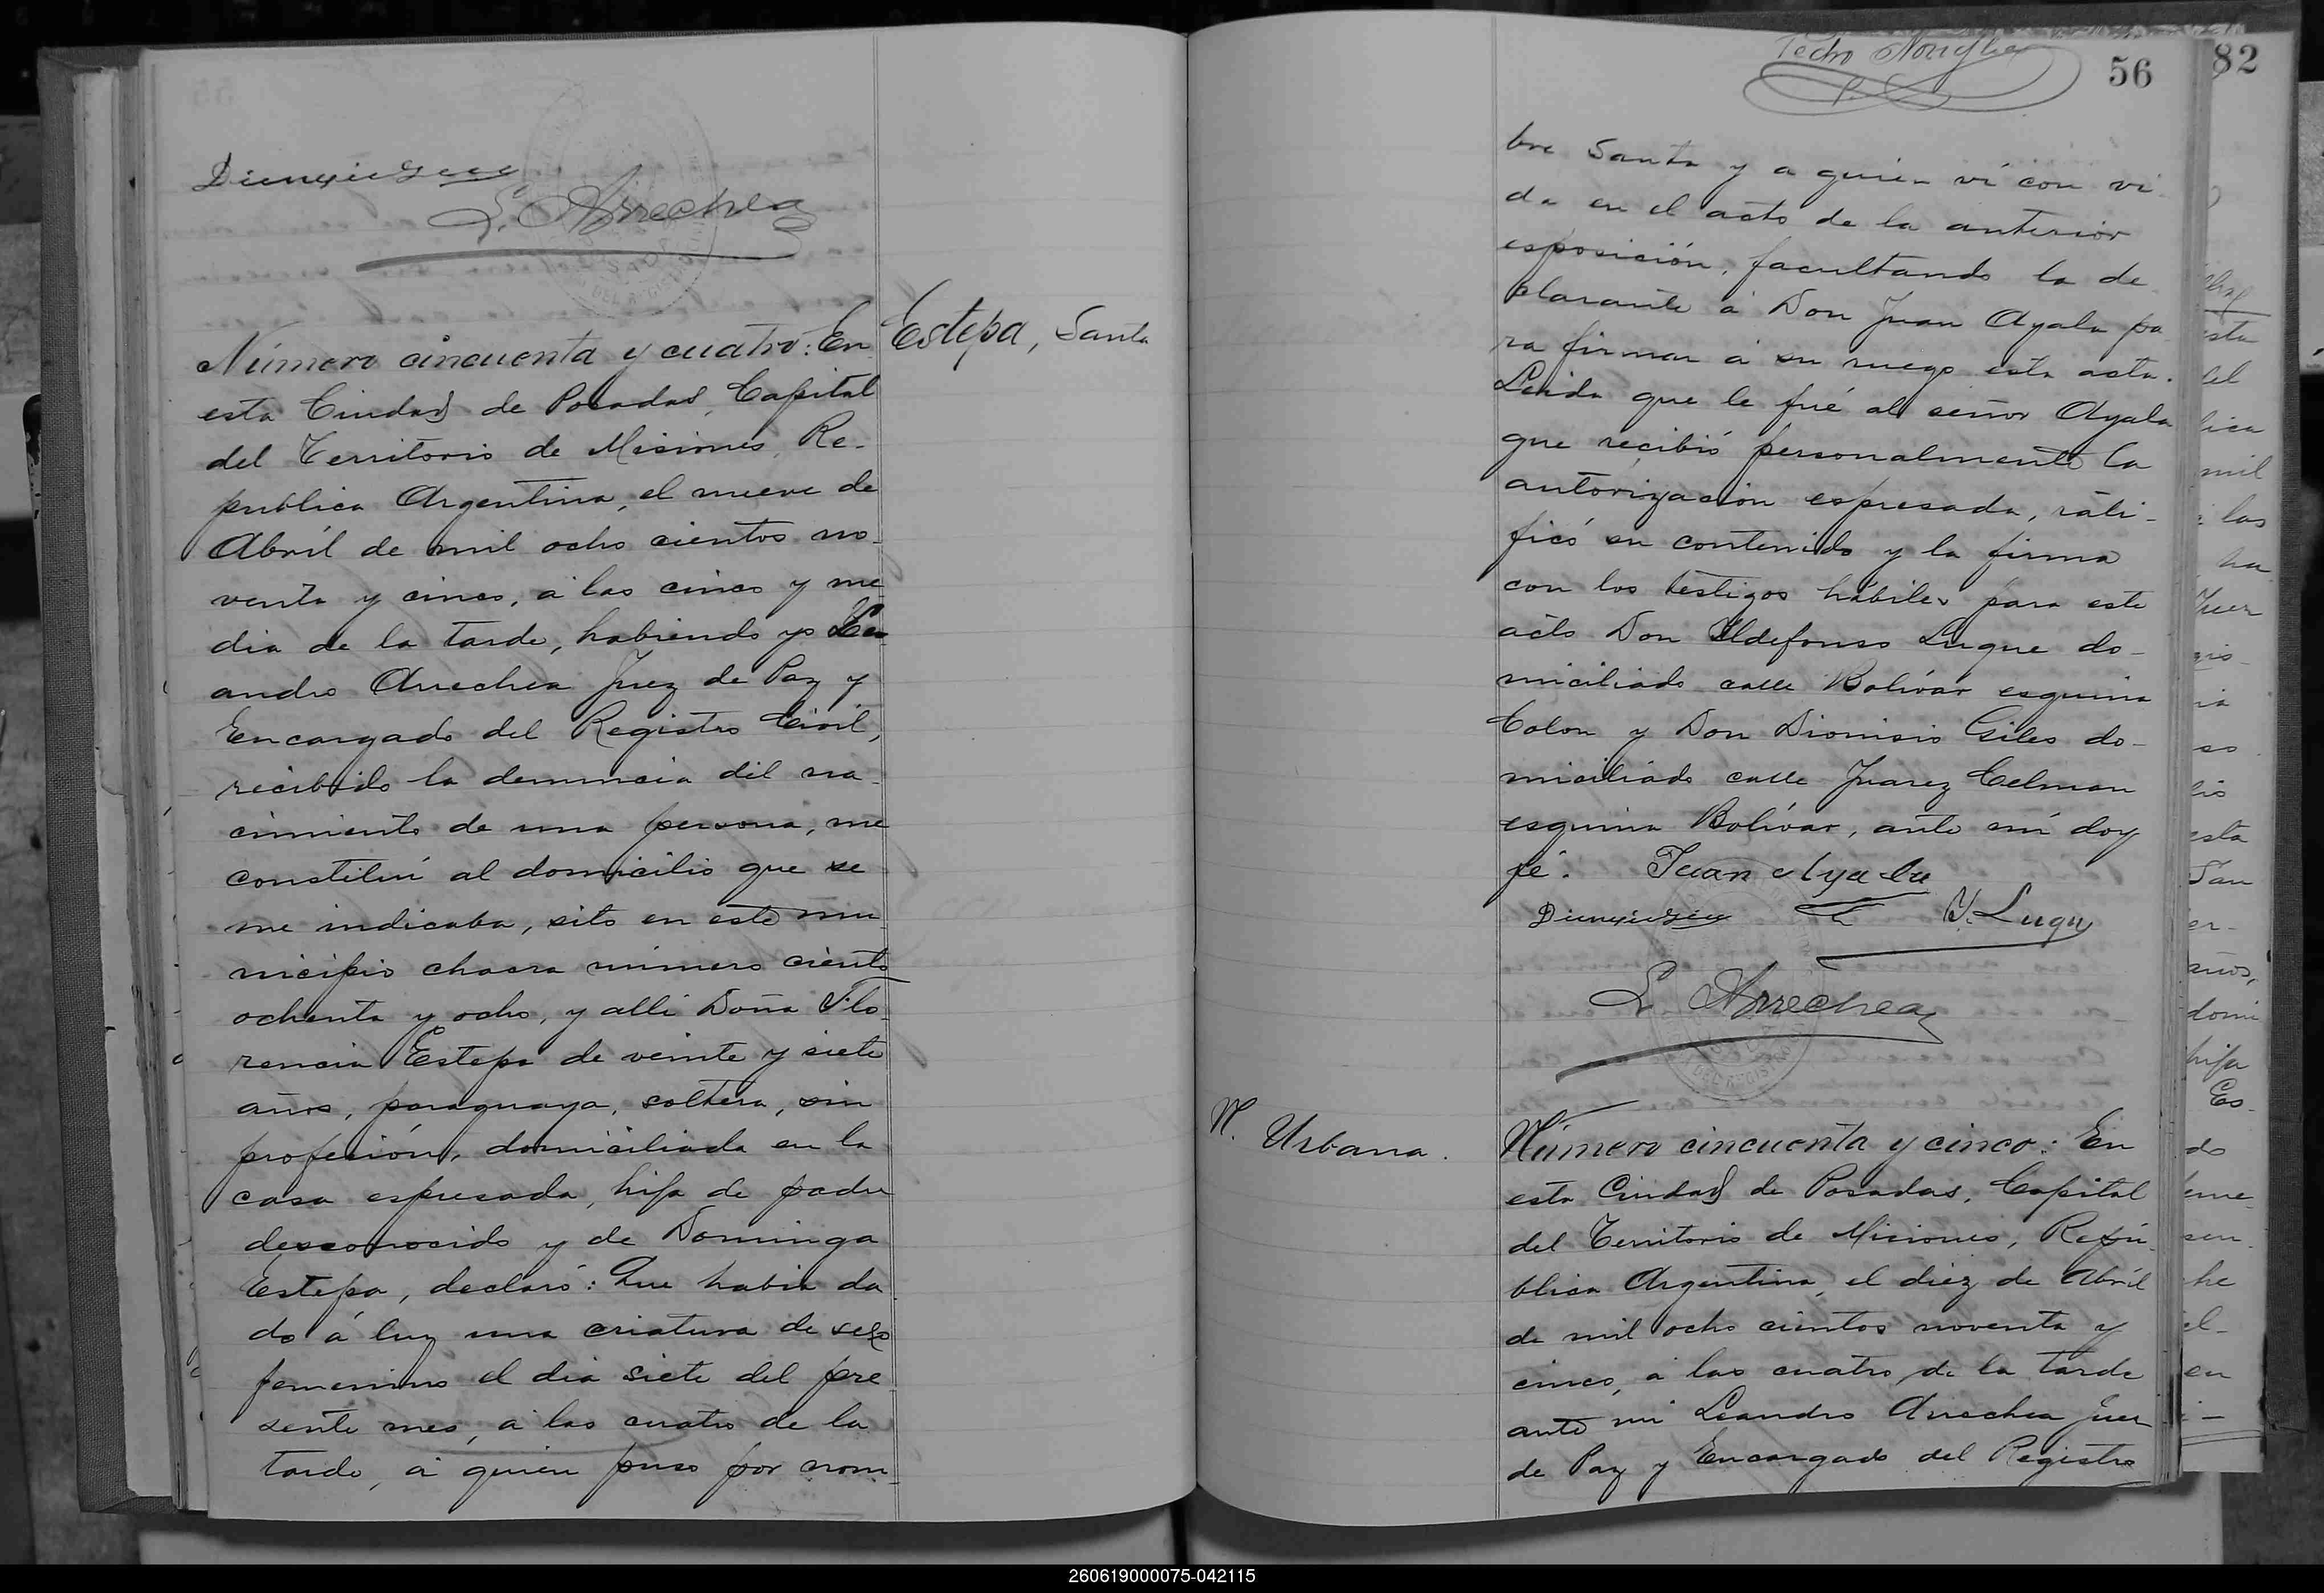 L. Arrechea
Número cincuenta y cuatro: En
Estepa, Santa
esta Ciudad de Posadas, Capital
del Territorio de Misiones, Re-
publica Argentina, el nueve de
Abril de mil ocho cientos no-
venta y cinco, á las cinco y me
dia de la tarde, habiendo yo Le-
andro Arrechea Juez de Paz y
Encargado del Registro Civil,
recibido la denuncia del na-
cimiento de una persona, me
constituí al domicilio que se
me indicaba, sito en este mu
nicipio chacra número ciento
ochenta y ocho, y allí Doña Flo-
rencia Estepa de veinte y siete
años, paraguaya, soltera, sin
profesión, domiciliada en la
casa espresada, hija de padre
desconocido y de Dominga
Estepa, declaró: Que habia da
do á luz una criatura de sexo
femenino el dia siete del pre
sente mes, á las cuatro de la
tarde, á quien puso por nom-
Pedro
56
82
bre Santa y a quien ví con vi-
da en el acto de la anterior
esposición, facultando la de
clarante á Don Juan Ayala pa
ra firmar á su ruego esta acta.
Leida que le fué al señor Ayala
que recibió personalmente la
autorización espresada, rati-
ficó su contenido y la firma
con los testigos hábiles para este
acto Don Ildefonso Luque do-
miciliado calle Bolívar esquina
Colon y Don Dionisio Giles do-
miciliado calle Juarez Celman
esquina Bolívar, ante mí doy
fé. Juan Ayala
Y. Luque
L. Arrechea
N. Urbana.
Número cincuenta y cinco: En
esta Ciudad de Posadas, Capital
del Territorio de Misiones, Repú-
blica Argentina, el diez de Abril
de mil ocho cientos noventa y
cinco, á las cuatro de la tarde
ante mi Leandro Arrechea Juez
de Paz y Encargado del Registro
260619000075-042115